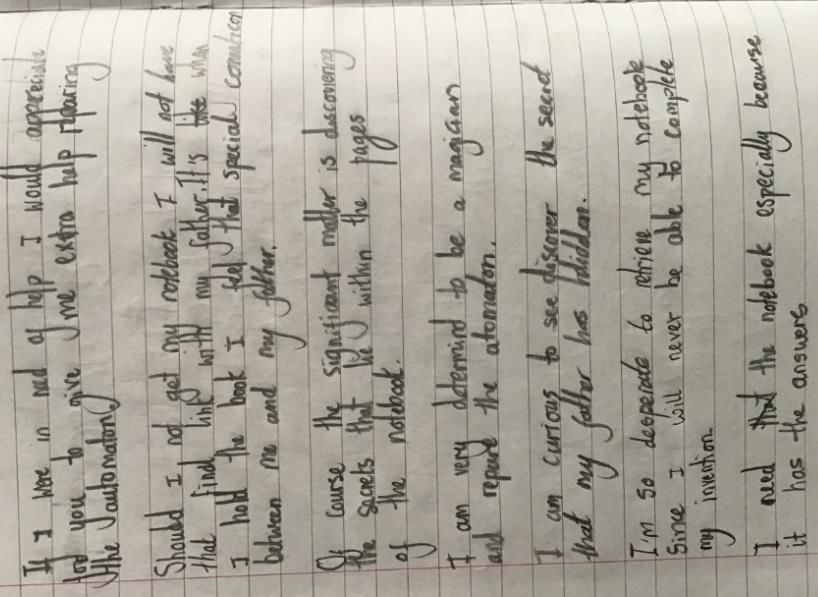 If I were in need of help I would appreciate
for you to give me extra help reparing
the automaton
Should I not get my notebook I will not have
that final link with my father. It is like when
I hold the book I feel that special connection
between me and my father.
Of course the significant matter is discovering
the secrets that lie within the pages
of the notebook.
I am very determind to be a magician
and repaire the atomaton.
I am curious to see discover the secret
that my father has hidden.
I'm so desperate to retrieve my notebook
Since I will never be able to complete
my invention.
I need that the notebook especially because
it has the answers